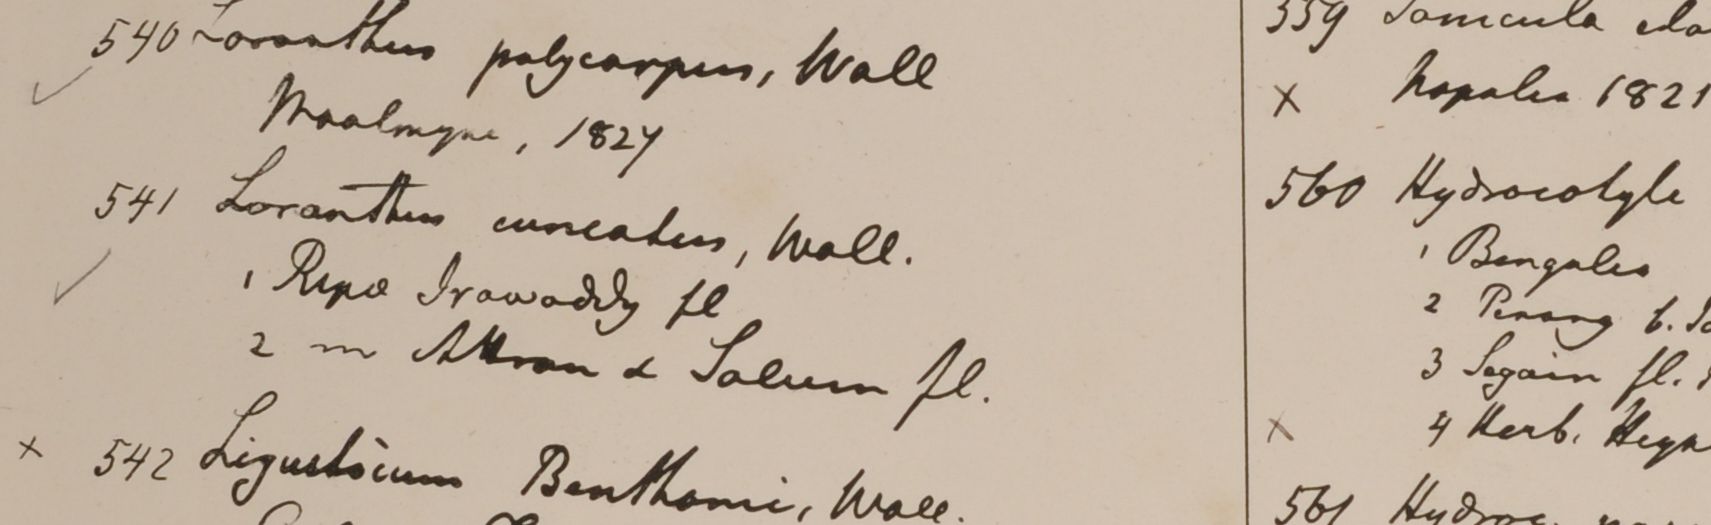 540 Loranthus polycarpus, Wall
Moalmyne, 1827
541 Loranthus cuneatus, Wall.
1 Ripa Irawaddy fl
2 m Attran & Salum fl.
x 542 Ligusticum Benthami, Wall.
559 Sanicula ela
x Napalia 1821
560 Hydrocotyle
1 Bengalia
2 Penang b.
3 Segain fl.
x 4 Herb. Heyn
561 Hydroc